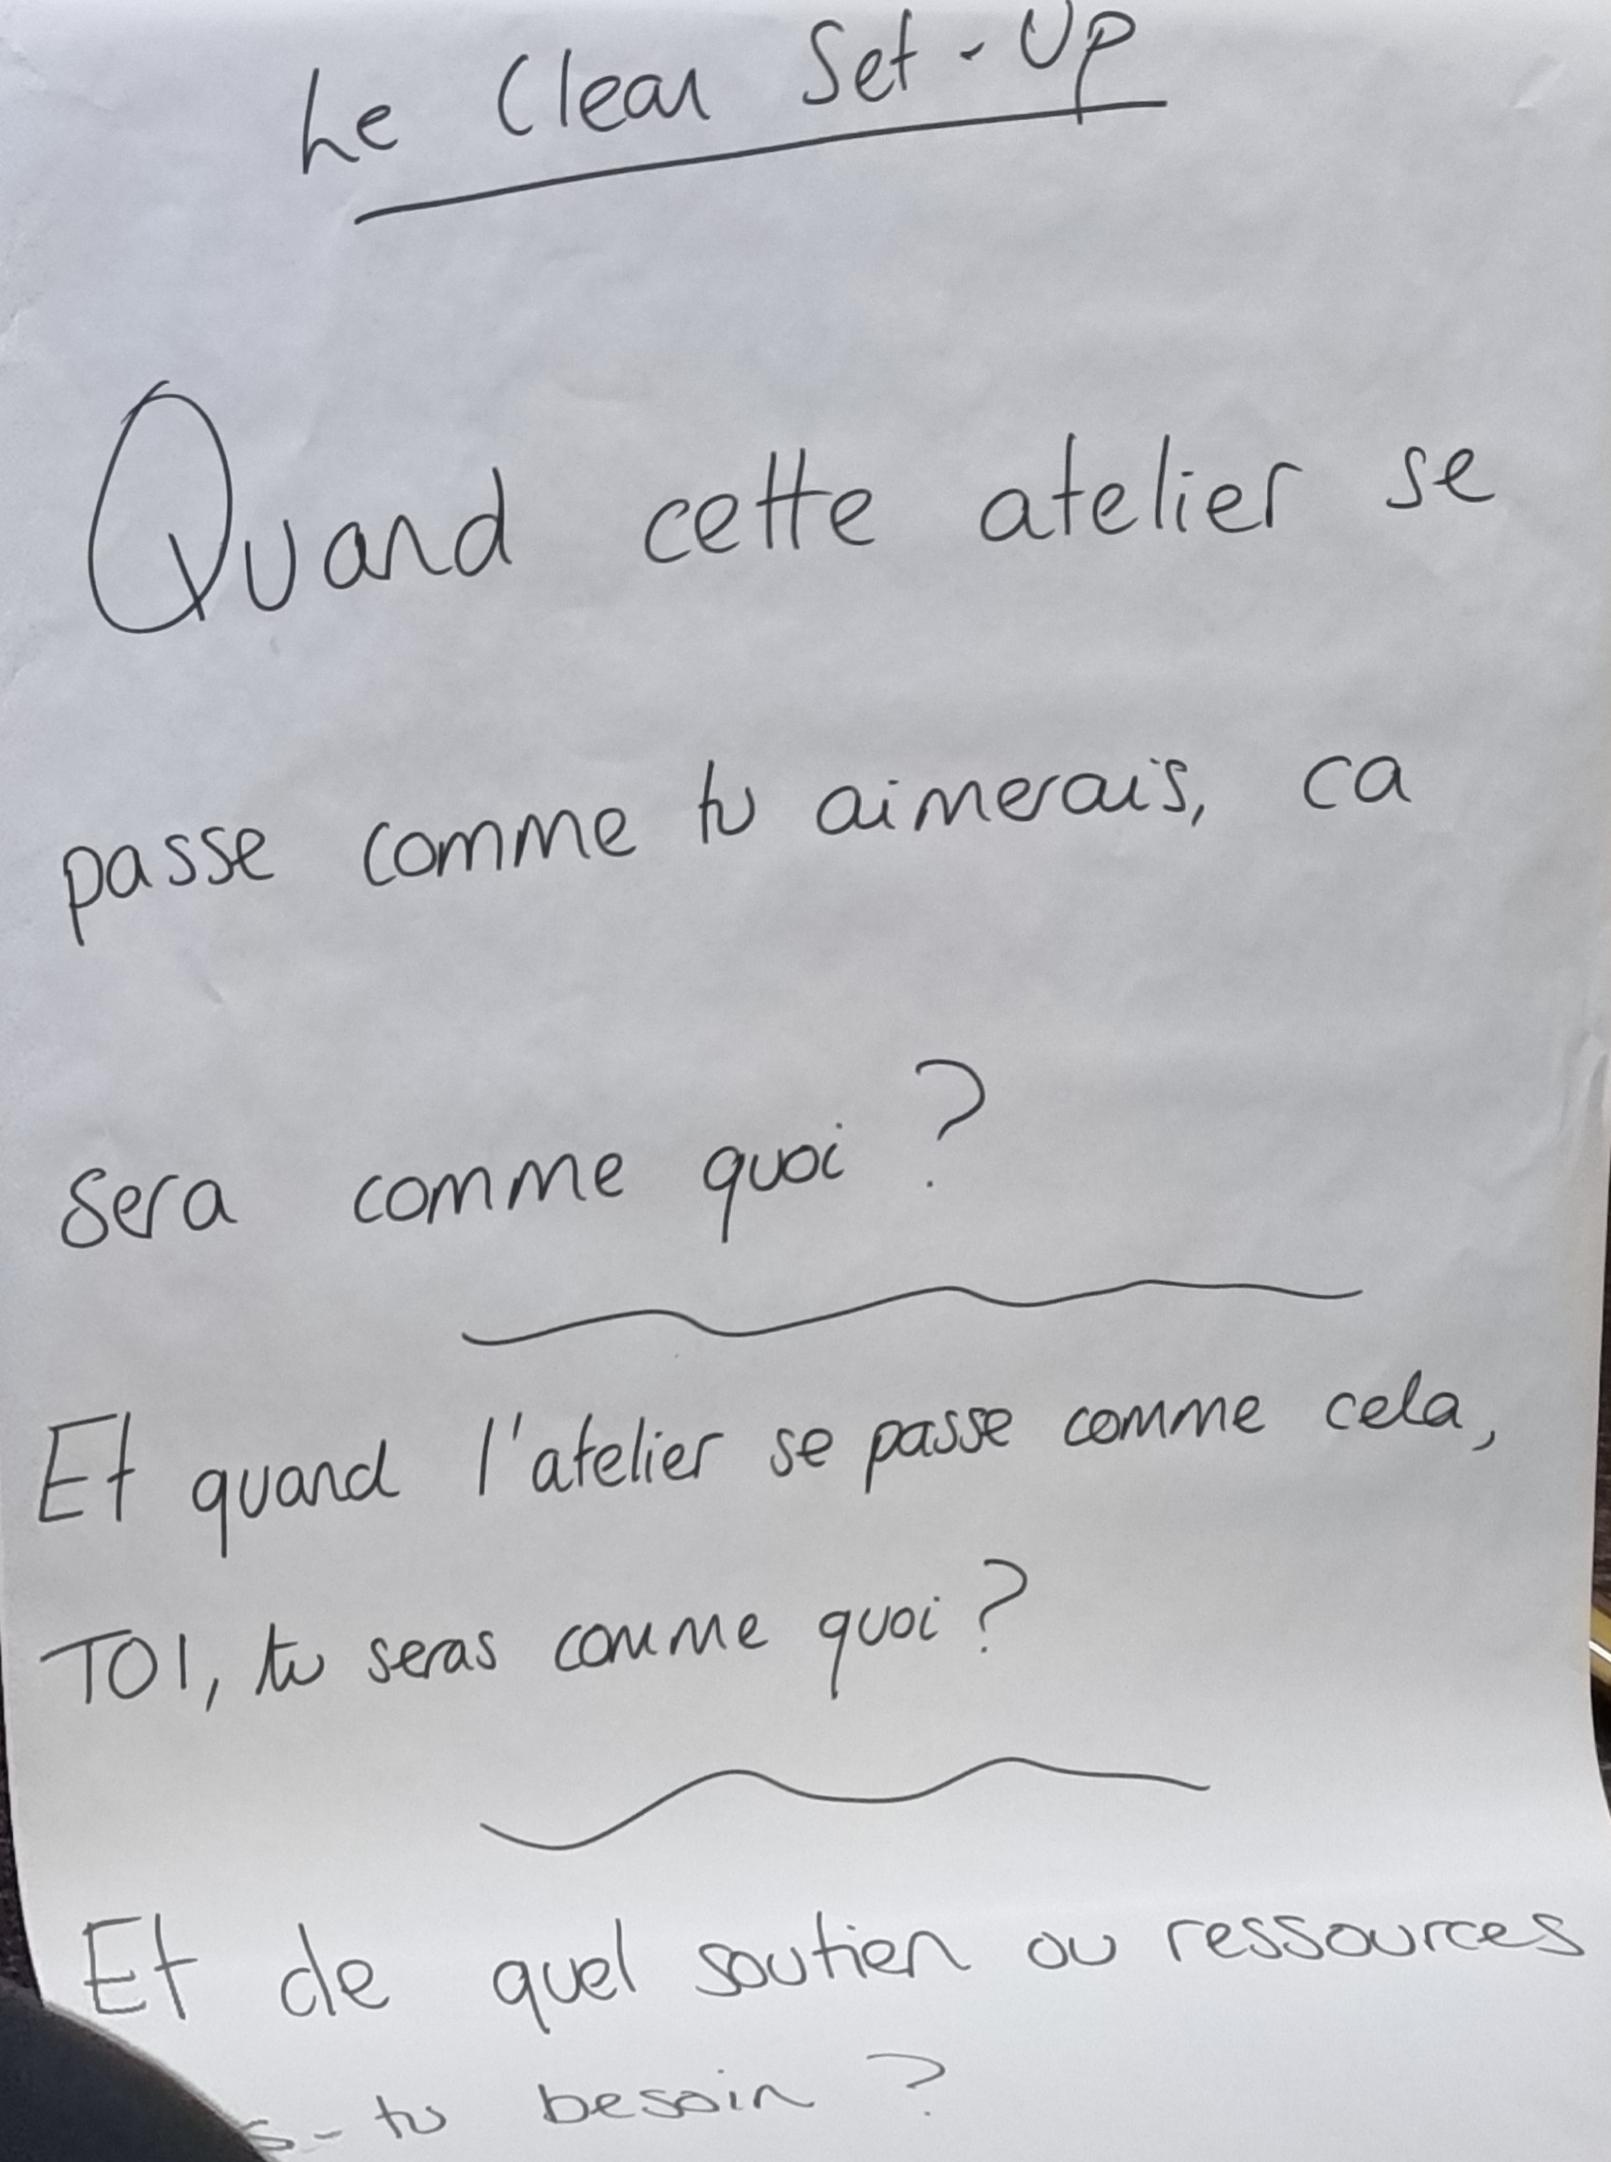 Le Clean Set-Up
Quand cette atelier se
passe comme tu aimerais, ca
sera comme quoi ?
Et quand l'atelier se passe comme cela,
TOI, tu seras comme quoi ?
Et de quel soutien ou ressources
s-tu besoin ?